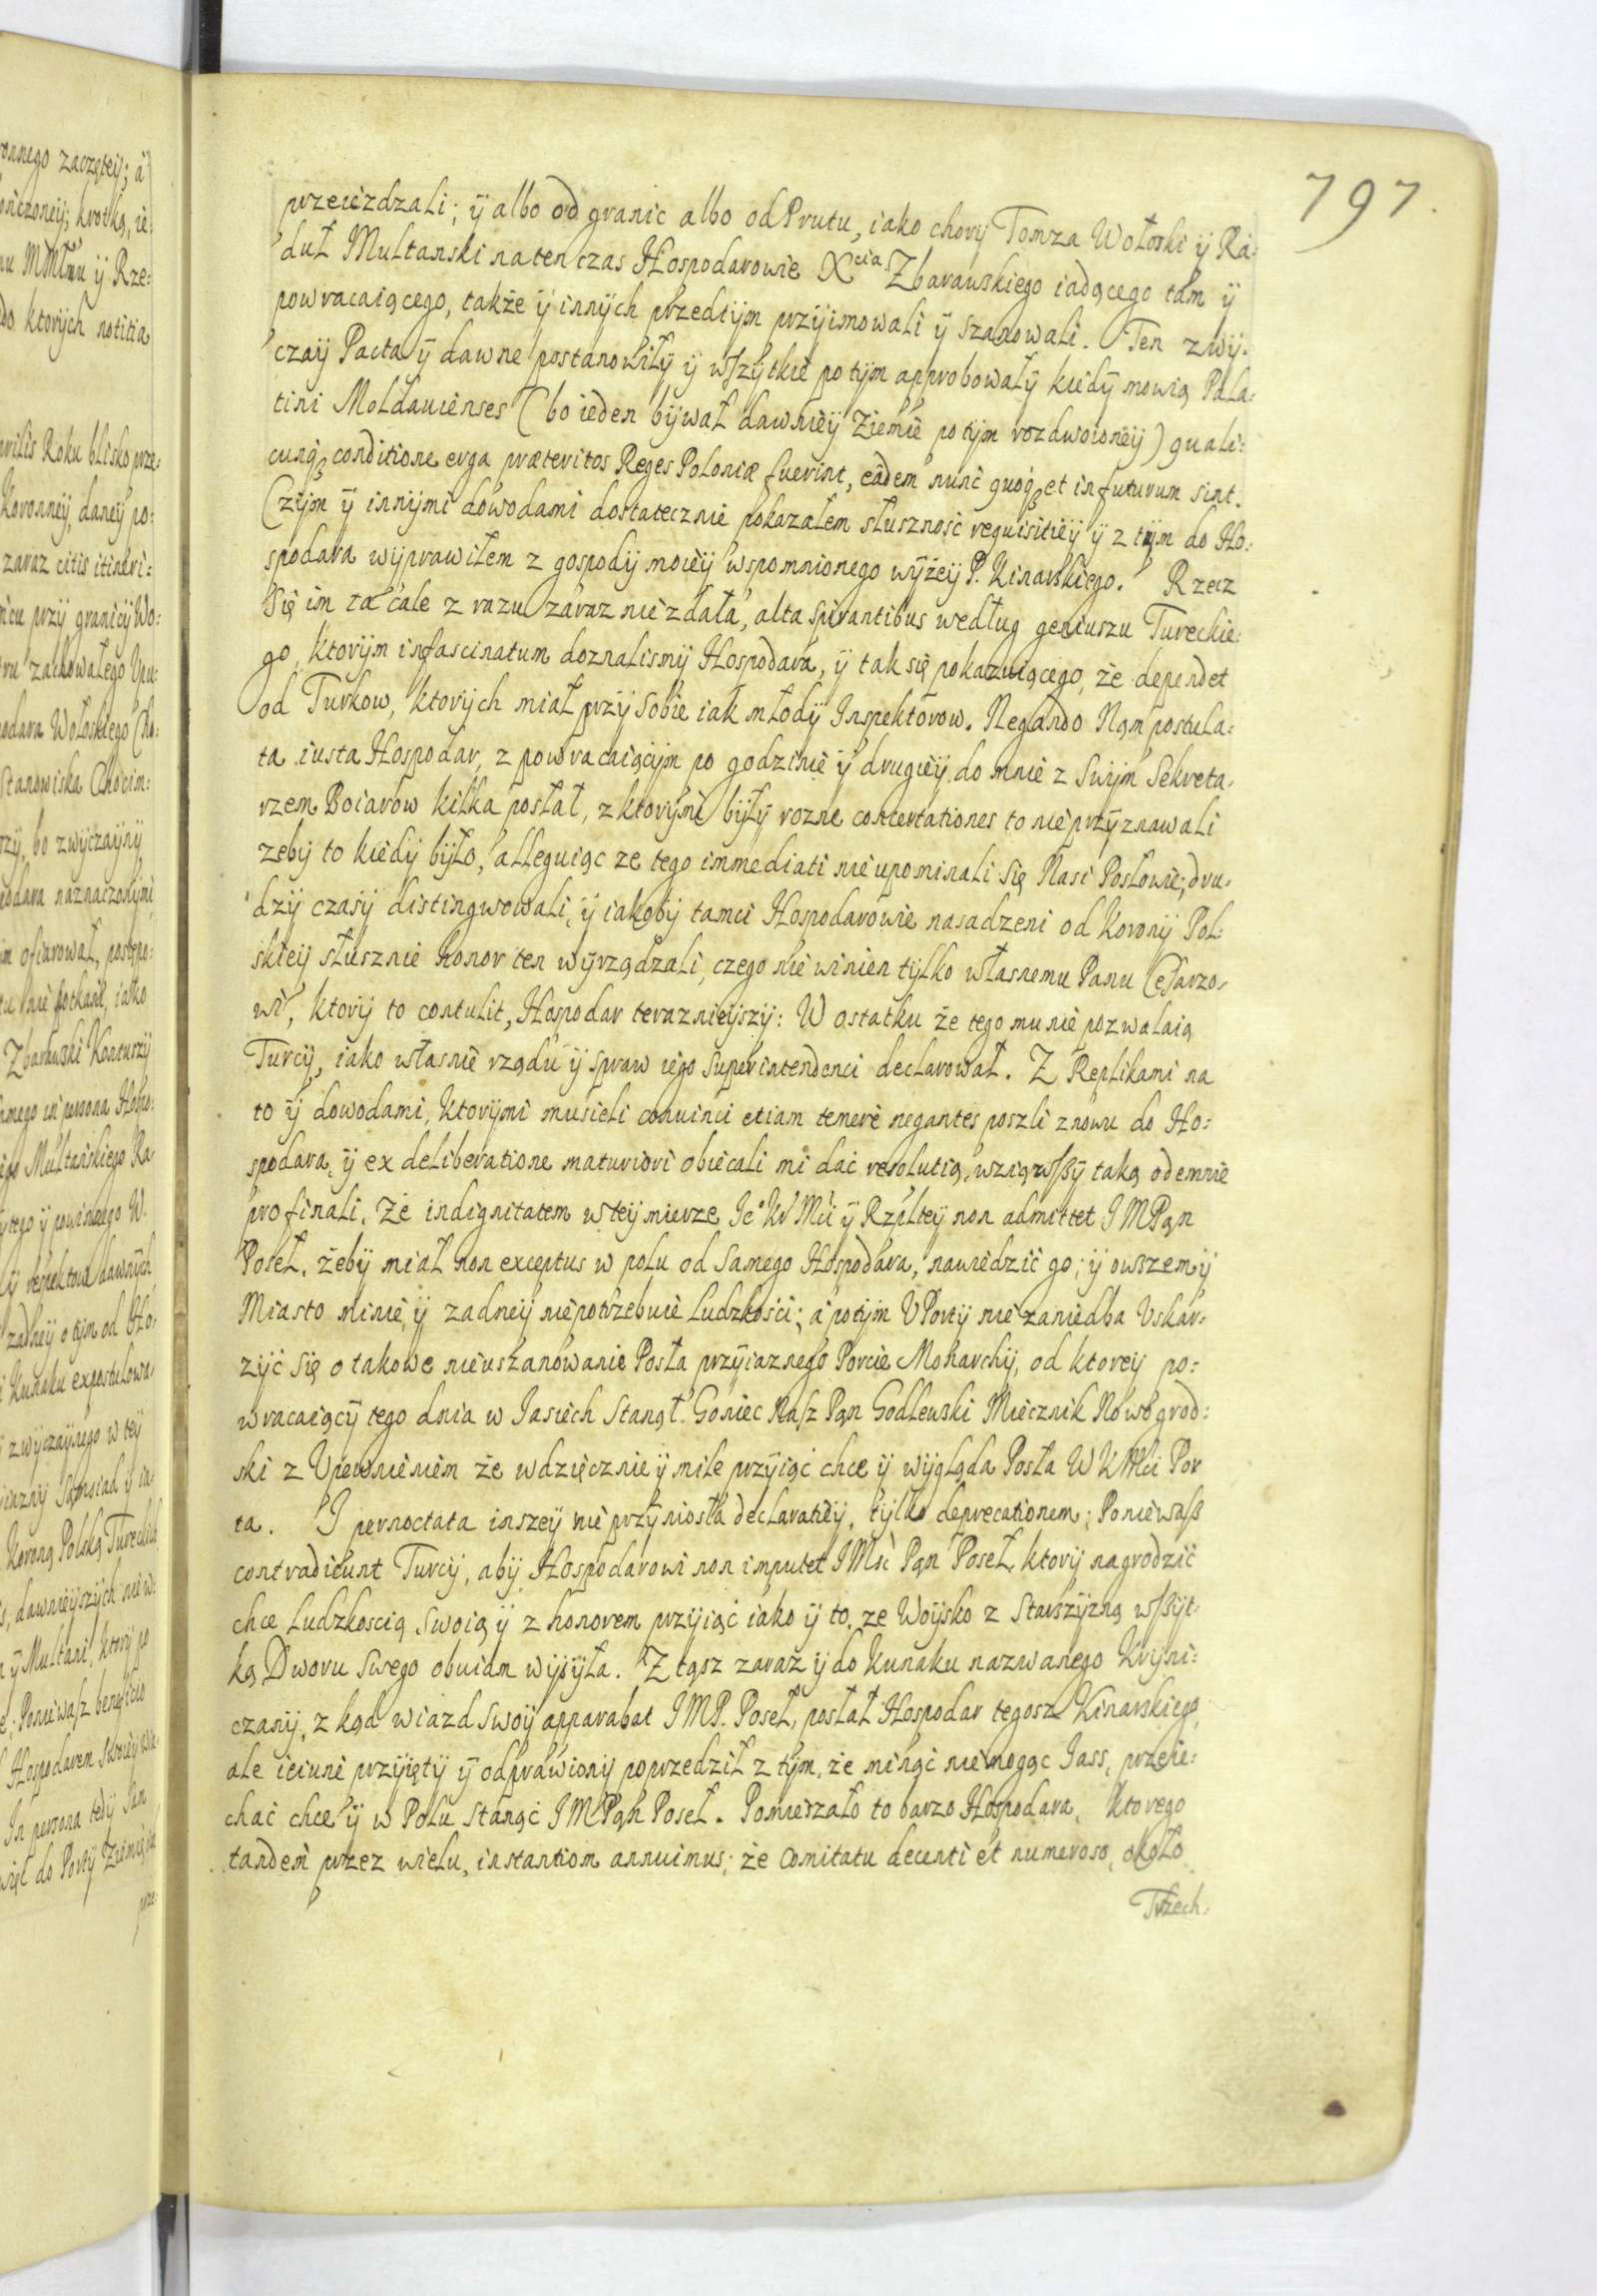 797.
przeieżdzali; ÿ albo od granic albo od Prutu, iako chorÿ Tomza Wołoski ÿ Ra:
duł Multanski na ten czas Hospodarowie Xcia Zbarawskiego iadącego tam ÿ
powracaiącego, także ÿ innÿch przedtÿm przÿimowali ÿ szanowali. Ten zwÿ:
czaÿ Pacta ÿ dawne postanowiłÿ ÿ wszÿtkie potÿm approbowałÿ kiedÿ mowią Pala:
tini Moldauienses (bo ieden bÿwał dawnieÿ Ziemie potÿm rozdwoioneÿ) quali:
cunq3 conditione erga præteritos Reges Poloniæ fuerint, eâdem nunc quoq3 et in futurum sint.
Czÿm ÿ innÿmi dowodami dostatecznie pokazałem słuszność requisitieÿ ÿ z tÿm do Ho:
spodara wÿprawiłem z gospodÿ moieÿ wspomnionego wÿżeÿ P. Kinarskiego. Rzecz
się im ta cale z razu zaraz nie zdała, alta spirantibus według geniuszu Tureckie:
go, ktorÿm infascinatum doznalismÿ Hospodara, ÿ tak się pokazuiącego, że dependet
od Turkow, ktorÿch miał przÿ sobie iak młodÿ Inspektorow. Negando Nąm postula:
ta iusta Hospodar, z powracaiącÿm po godzinie ÿ drugieÿ do mnie z swÿm Sekreta:
rzem Boiarow kilka posłał, z ktorÿmi bÿłÿ rozne concertationes to nie przÿznawali
zebÿ to kiedÿ bÿło, alleguiąc ze tego immediati nie upominali się Nasi Posłowie; dru:
dzÿ czasÿ distingwowali, ÿ iakobÿ tamci Hospodarowie nasadzeni od Koronÿ Pol:
skieÿ słusznie honor ten wÿrządzali, czego nie winien tÿlko własnemu Panu Cesarzo:
wi, ktorÿ to contulit, Hospodar teraznieÿszÿ: W ostatku że tego mu nie pozwalaią
Turcÿ, iako własnie rządu ÿ spraw iego superintendenci declarował. Z Replikami na
to ÿ dowodami, ktorÿmi musieli conuinci etiam temerè negantes poszli znowu do Ho:
spodara, ÿ ex deliberatione maturiori obiecali mi dać resolutią, wziąwszÿ taką odemnie
pro finali. Że indignitatem w teÿ mierze Je° Kr Mći ÿ Rzpłteÿ non admittet JMPąn
Poseł, żebÿ miał non exceptus w polu od samego Hospodara, nawiedzić go; ÿ owszem ÿ
Miasto minie, ÿ zadneÿ niepotrzebuie ludzkości; a potÿm U Portÿ nie zaniedba Uskar:
zÿć się o takowe nieuszanowanie Posła przÿiaznego Porcie Monarchÿ, od ktoreÿ po:
wracaiącÿ tego dnia w Jasiech stanął Goniec Nasz Pąn Godlewski Miecznik Nowogrod:
ski z Upewnieniem że wdzięcznie ÿ mile przÿiąć chce ÿ wÿgląda Posła WKMći Por
ta. I pernoctata inszeÿ nie przÿniosła declaratieÿ, tÿlko deprecationem; Poniewasz
contradicunt Turcÿ, abÿ Hospodarowi non imputet JMść Pąn Poseł, ktorÿ nagrodzić
chce ludzkoscią swoią ÿ z honorem przÿiąć iako ÿ to, ze Woÿsko z Starszÿzną wszÿt:
ką Dworu swego obuiam wÿsÿła. Z tąsz zaraz ÿ do Kunaku nazwanego Krÿni:
czanÿ, z kąd wiazd swoÿ apparabat JMP. Poseł, posłał Hospodar tegosz Kinarskiego,
ale ieiunè przÿiętÿ ÿ odprawionÿ poprzedził z tÿm, że minąć nie mogąc Jass, przeie:
chać chce ÿ w Polu stanąć JMPąn Poseł. Pomieszało to barzo Hospodara, ktorego
tandem przez wielu, instantiom annuimus; że comitatu decenti et numeroso, około
Trzech: